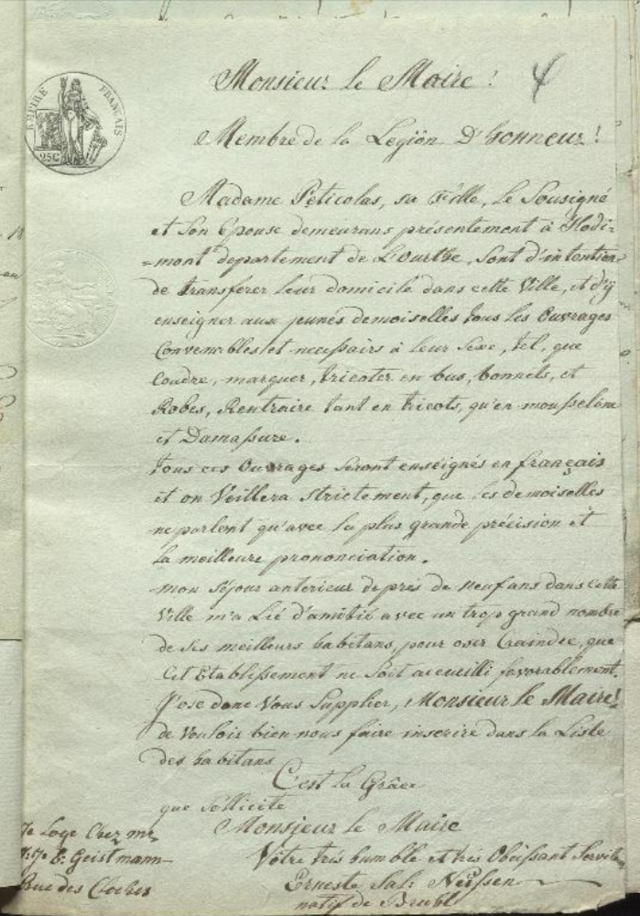 Monsieur le Maire !
Membre de la Legiön D'honneur !
EMPIRE FRANÇAIS
25C
Madame Peticolas, sa Fille, le Sousigné
et Son Epouse demeurans présentement à Hodi-
=mont departement de L'Ourthe, sont d'intention
de transferer leur domicile dans cette Ville, et d'ÿ
enseigner aux jeunes demoiselles tous les Ouvrages
Convenables et necessairs à leur Sexe, tel, que
Coudre, marquer, tricoter en bas, bonnets, et
Robes, Rentraire tant en tricots, qu'en mousseline
et Damassure.
tous ces Ouvrages seront enseignés en français
et on Veillera strictement, que les demoiselles
ne parlent qu'avec la plus grande précision et
la meilleure prononciation.
mon séjour anterieur de près de neuf ans dans cette
Ville m'a Lié d'amitié avec un trop grand nombre
de ses meilleurs habitans, pour oser Craindre, que
Cet Etablissement ne soit accueilli favorablement.
J'ose donc Vous Supplier, Monsieur le Maire!
de Vouloir bien nous faire inscrire dans la Liste
des habitans
C'est la Grâce
que sollicite
Monsieur le Maire
Votre très humble et très Obéissant Servit
Erneste Sal: Neissen
natif de Bruhl
Je Loge Chez
E. Geistmann
Rue des Cloches